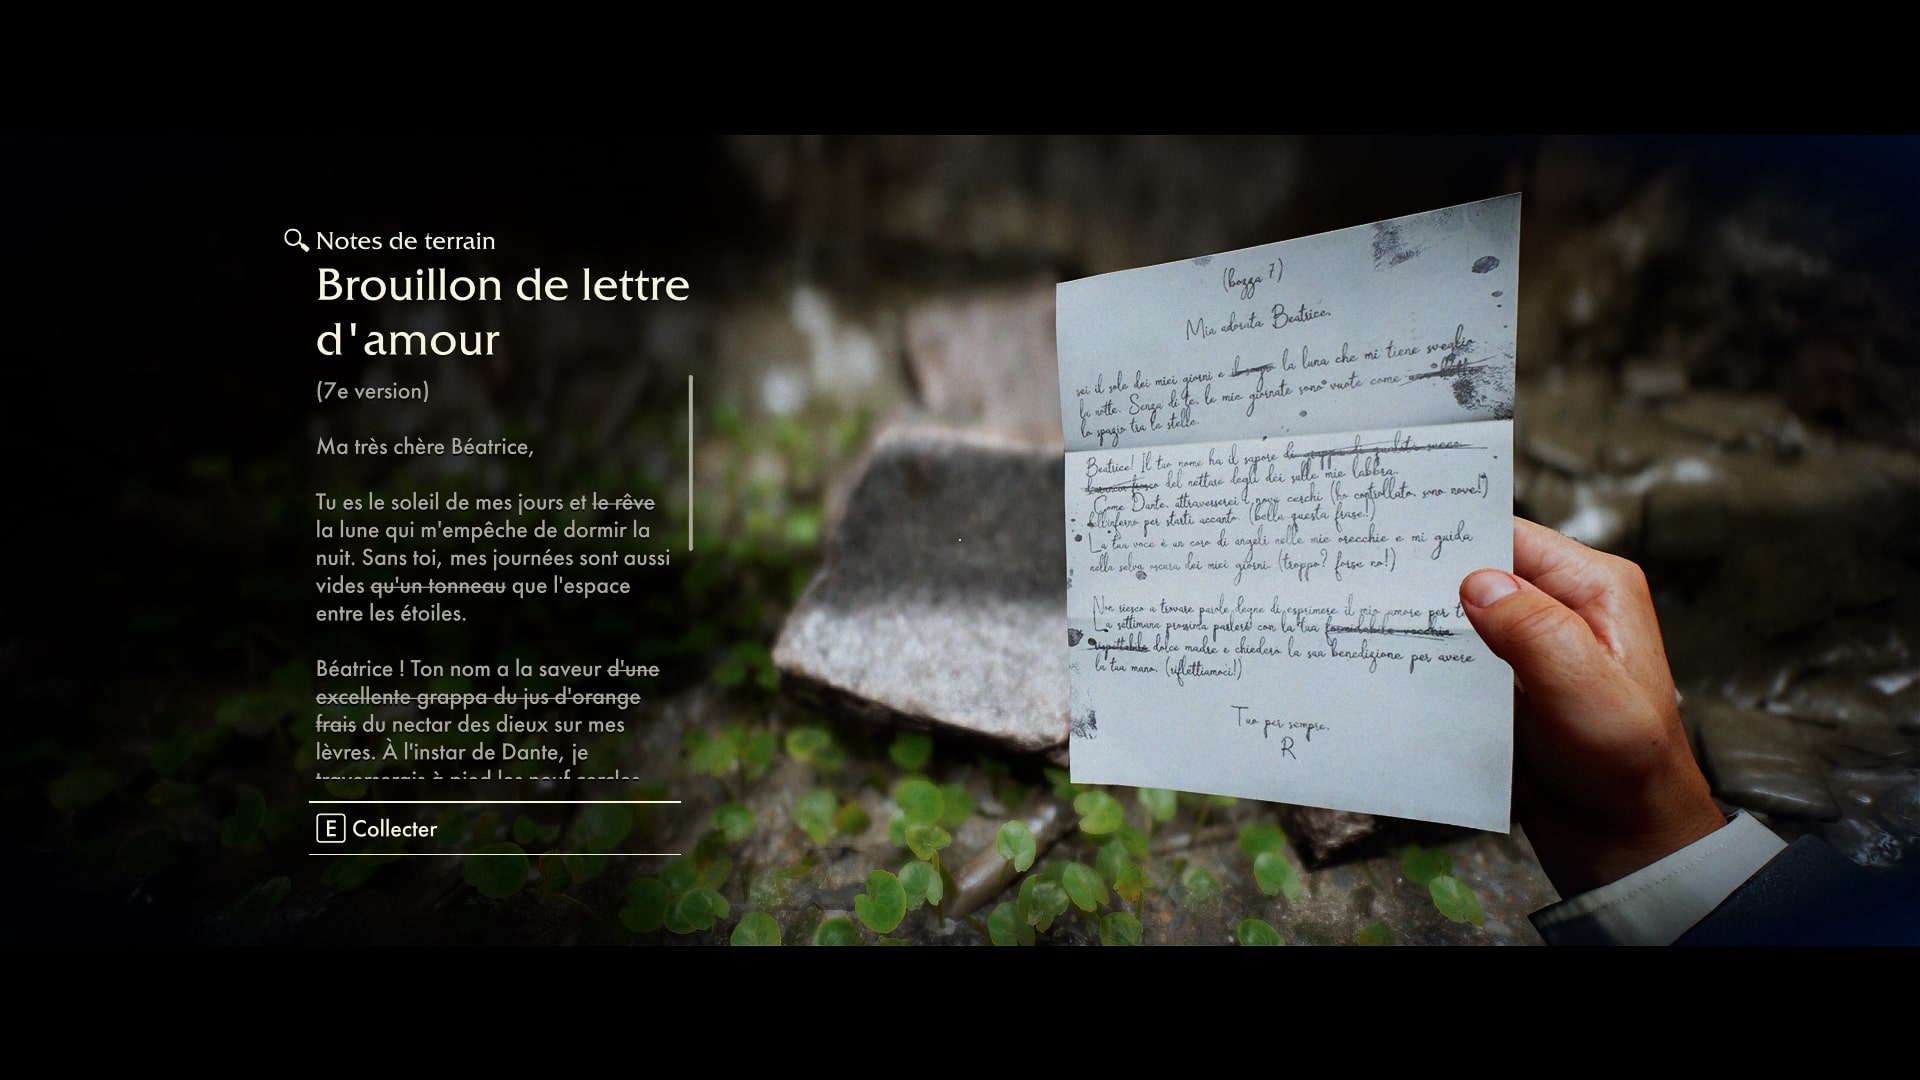 Notes de terrain
Brouillon de lettre
d'amour
(7e version)
Ma très chère Béatrice,
Tu es le soleil de mes jours et le rêve
la lune qui m'empêche de dormir la
nuit. Sans toi, mes journées sont aussi
vides qu'un tonneau que l'espace
entre les étoiles.
Béatrice ! Ton nom a la saveur d'une
excellente grappa du jus d'orange
frais du nectar des dieux sur mes
lèvres. À l'instar de Dante, je
traverserais à pied les neuf cercles
E Collecter
(bozza 7)
Mia adorata Beatrice,
sei il sole dei miei giorni e il sogno la luna che mi tiene sveglio
la notte. Senza di te, le mie giornate sono vuote come
lo spazio tra le stelle.
Beatrice! Il tuo nome ha il sapore di grappa di qualità succo
d'arancia fresco del nettare degli dei sulle mie labbra.
Come Dante, attraverserei i nove cerchi (ho controllato, sono nove!)
dell'inferno per starti accanto. (bella questa frase!)
La tua voce è un coro di angeli nelle mie orecchie e mi guida
nella selva oscura dei miei giorni. (troppo? forse no!)
Non riesco a trovare parole degne di esprimere il mio amore per t
La settimana prossima parlerò con la tua formidabile vecchia
rispettabile dolce madre e chiederò la sua benedizione per avere
la tua mano. (riflettiamoci!)
Tuo per sempre,
R